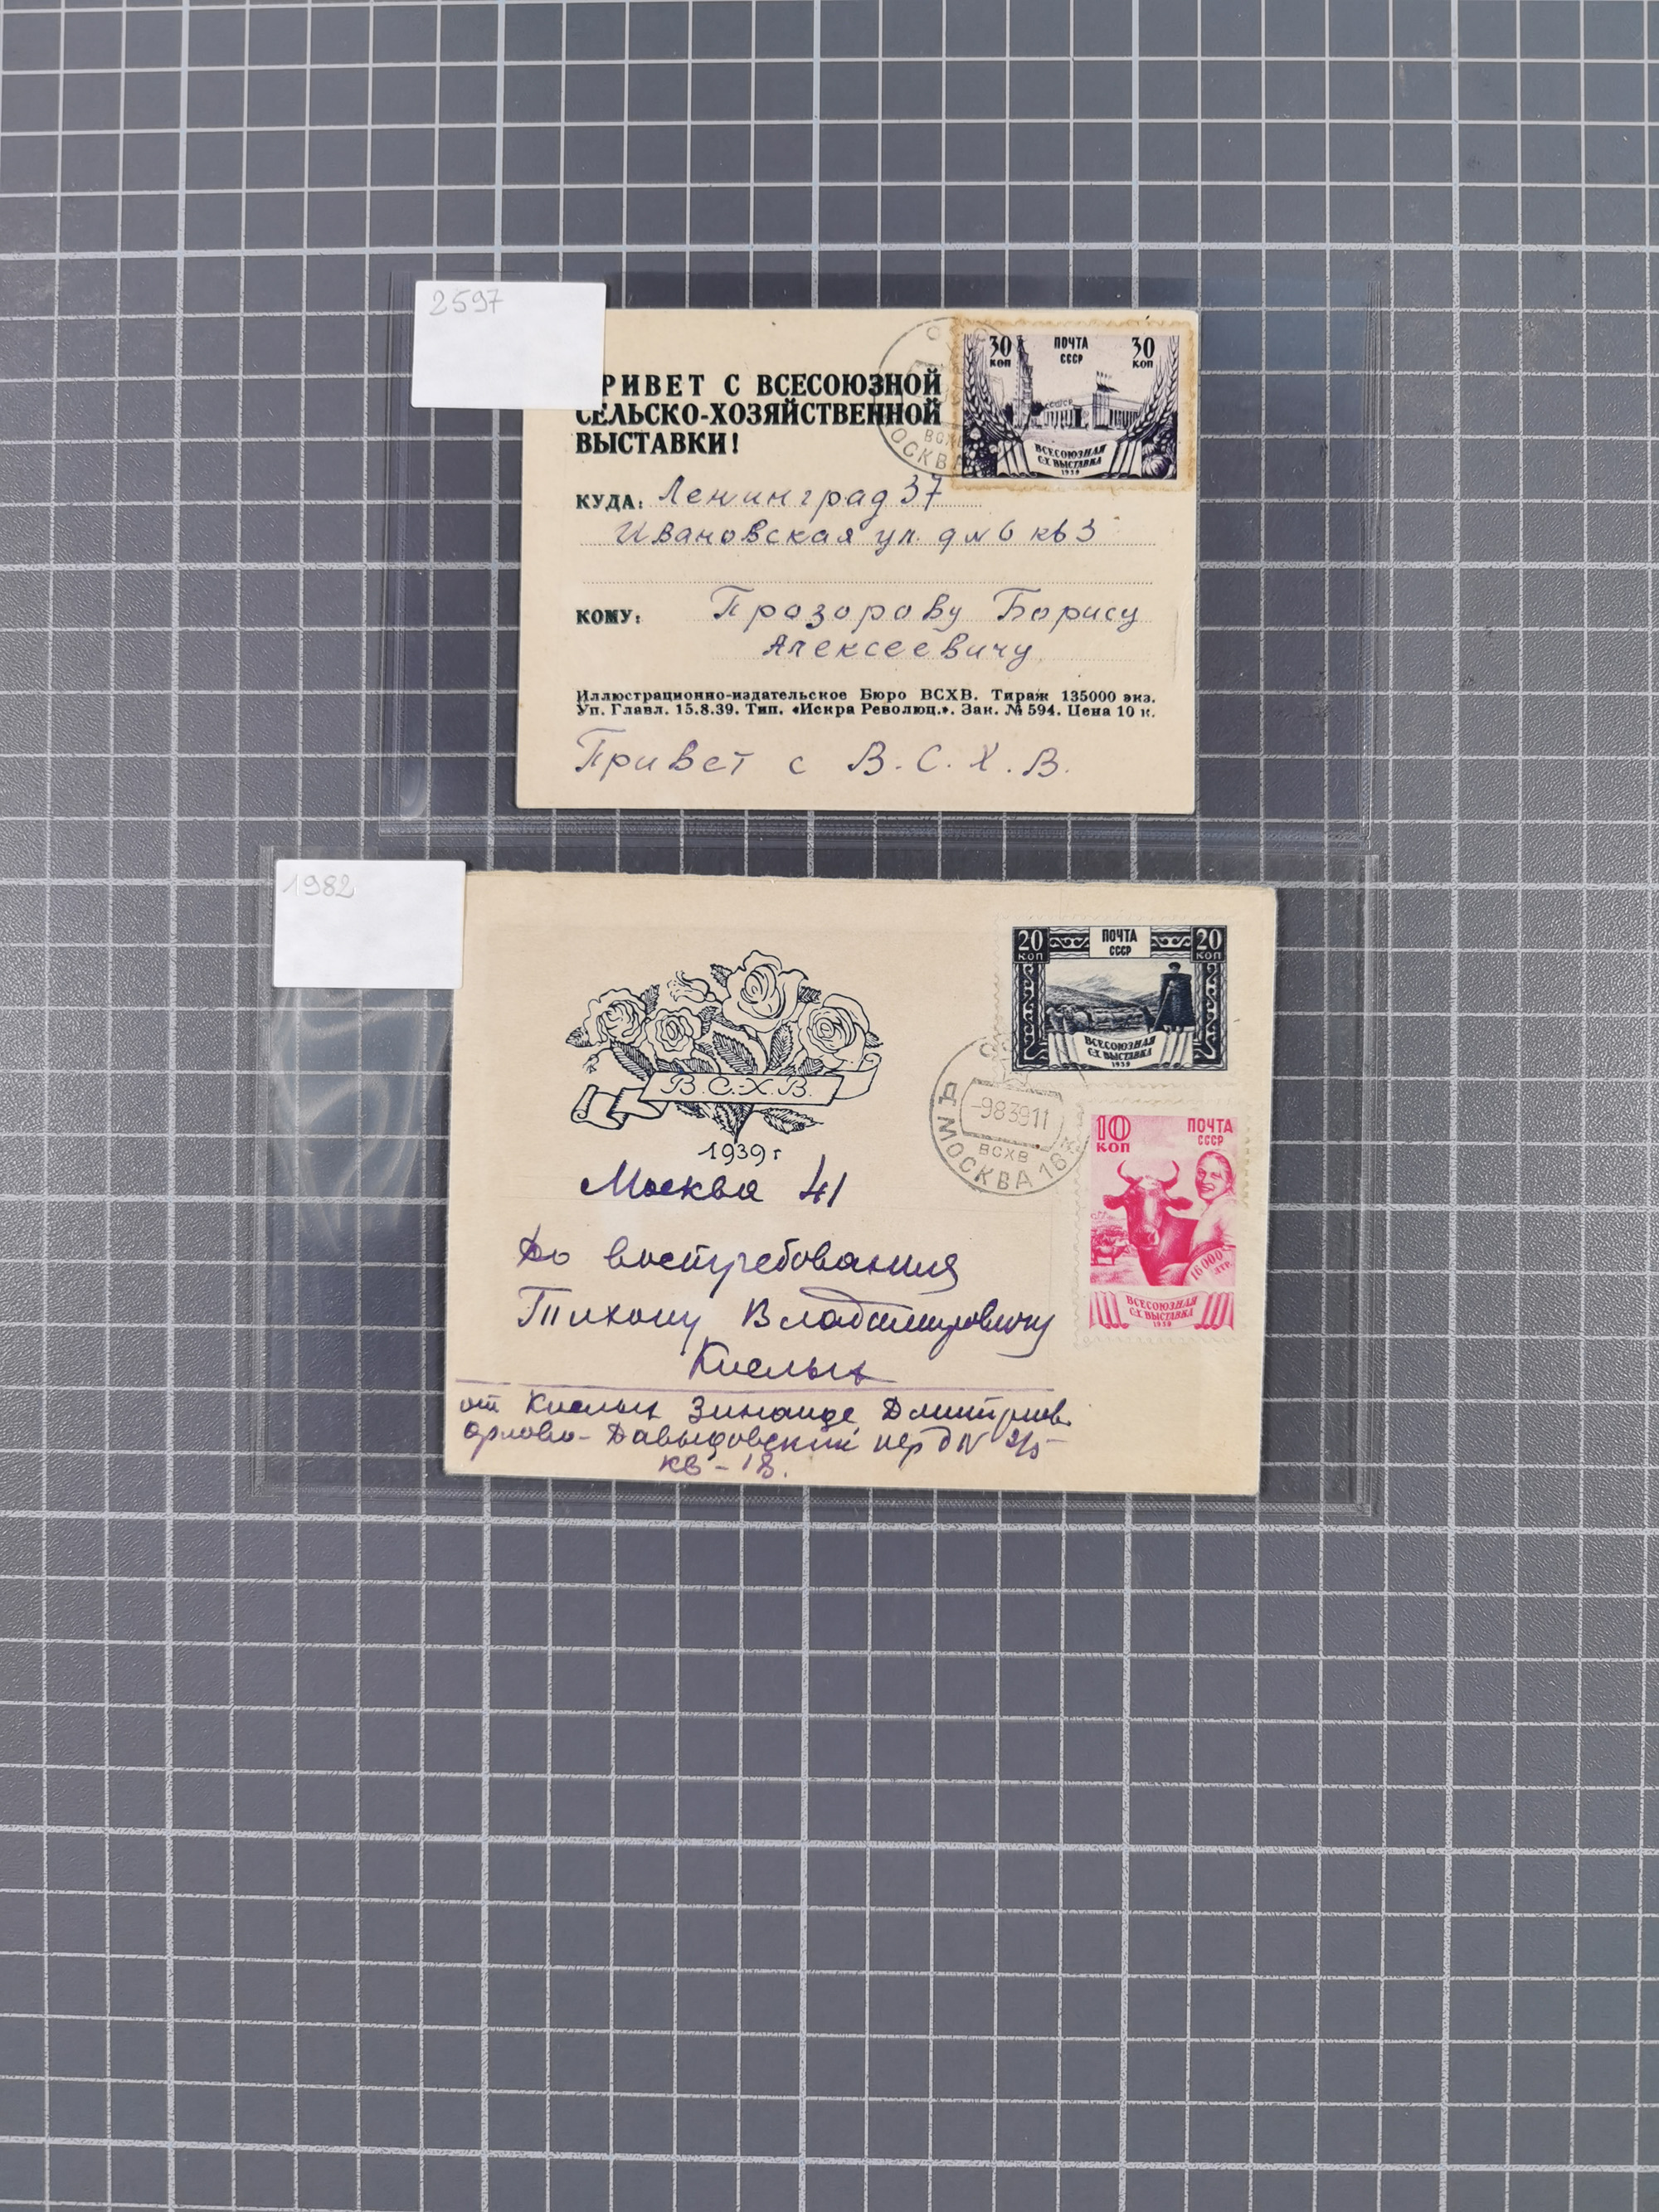 2597
РИВЕТ С ВСЕСОЮЗНОЙ
СЕЛЬСКО-ХОЗЯЙСТВЕННОЙ
ВЫСТАВКИ!
30 КОП ПОЧТА СССР 30 КОП
ВСЕСОЮЗНАЯ
С-Х ВЫСТАВКА
1939
КУДА: Ленинград 37
Ивановская ул. д № 6 кв 3
КОМУ: Прозорову Борису
Алексеевичу
Иллюстрационно-издательское Бюро ВСХВ. Тираж 135000 экз.
Уп. Главл. 15.8.39. Тип. «Искра Революц.». Зак. № 594. Цена 10 к.
Привет с В.С.Х.В.
1982
В.С.-Х.В.
1939 г
20 КОП ПОЧТА СССР 20 КОП
ВСЕСОЮЗНАЯ
С-Х ВЫСТАВКА
1939
-98 39 11
ВСХВ
МОСКВА 16
10 КОП ПОЧТА СССР
16000 ЛТР.
ВСЕСОЮЗНАЯ
С-Х ВЫСТАВКА
1939
Москва 41
До востребования
Тихону Владимировичу
от Зинаиде Дмитриев.
Орлово-Давыдовский пер д №
кв-18.